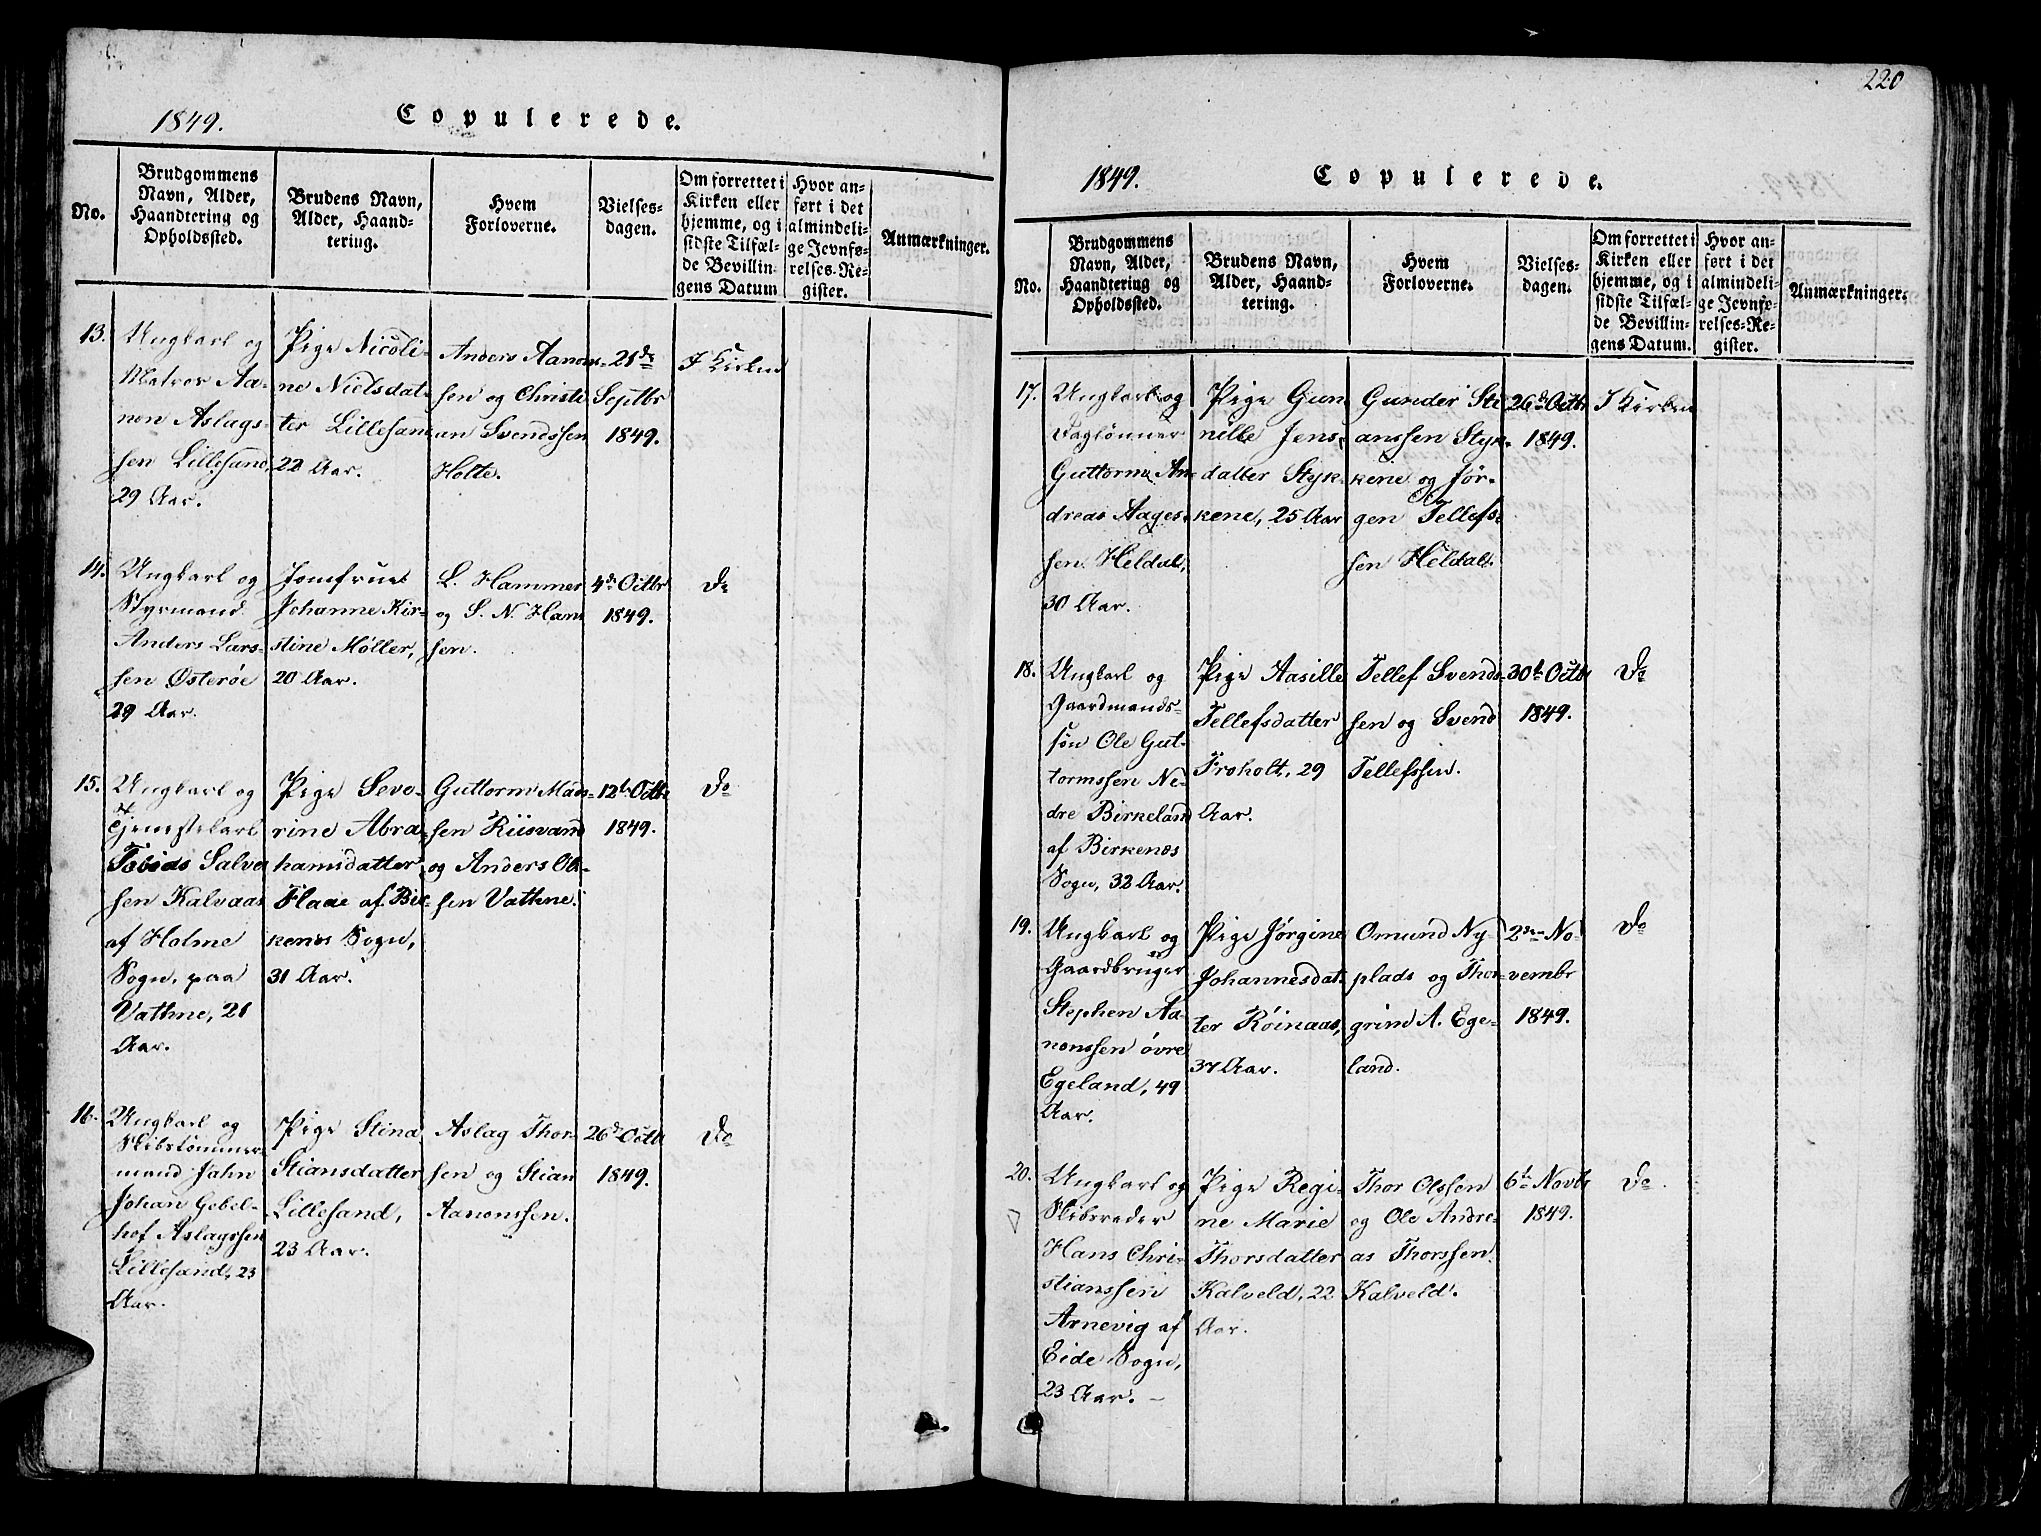 1849.
Copulerede.
No.
Brudgommens
Navn, Alder,
Haandtering og
Opholdssted.
Brudens Navn,
Alder, Haand-
tering.
Hvem
Forloverne.
Vielses-
dagen.
Om forrettet i
Kirken eller
hjemme, og i
sidste Tilfæl-
de Bevillin-
gens Datum
Hvor an-
ført i det
almindeli-
ge Jevnfø-
relses-Re-
gister.
Anmærkninger.
13.
Ungkarl og
Matros Aa-
non Aslags-
sen Lillesand,
29 Aar.
Pige Nicoli-
ne Nielsdat-
ter Lillesand
22 Aar.
Anders Aanons-
sen og Christi
an Svendssen
Holte.
21de
Septbr
1849.
I Kirken
14.
Ungkarl og
Styrmand
Anders Lars-
sen Osterøe
29 Aar.
Jomfrue
Johanne Kir-
stine Møller,
20 Aar.
L. Hammer
og S. N. Han
sen.
4de Octbr
1849.
Do
15.
Ungkarl og
Tjenestekarl
Tobias Salve
sen Kalvaas
af Holme
Sogn, paa
Vathne, 21
Aar.
Pige Seve-
rine Abra-
hamsdatter
Flaae af Bir-
kenes Sogn,
31 Aar.
Guttorm Mads-
sen Riisvand
og Anders Ol-
sen Vathne.
12te Octbr
1849.
Do
16.
Ungkarl og
Skibstømmer-
mand Jahn
Johan Gebel-
hof Aslagssen
Lillesand, 23
Aar.
Pige Stina
Stiansdatter
Lillesand,
23 Aar.
Aslag Thor-
sen og Stian
Aanonssen.
26de Octbr
1849.
Do
220
1849.
Copulerede.
No.
Brudgommens
Navn, Alder,
Haandtering og
Opholdssted.
Brudens Navn,
Alder, Haand-
tering.
Hvem
Forloverne.
Vielses-
dagen.
Om forrettet i
Kirken eller
hjemme, og i
sidste Tilfæl-
de Bevillin-
gens Datum.
Hvor an-
ført i det
almindeli-
ge Jevnfø-
relses-Re-
gister.
Anmærkninger.
17.
Ungkarl og
Daglønner
Guttorm An-
dreas Aages-
sen Heldal,
30 Aar.
Pige Gun
nille Jens-
datter Styk-
kene, 25 Aar
Gunder Sti
anssen Styk-
kene og Jør-
gen Tellefs
sen Heldal.
26de Octbr
1849.
I Kirken
18.
Ungkarl og
Gaardmands-
søn Ole Gut-
tormssen Ne-
dre Birkeland
af Birkenes
Sogn, 32 Aar.
Pige Aasille
Tellefsdatter
Froholt, 29
Aar.
Tellef Svends-
sen og Svend
Tellefssen.
30te Octbr
1849.
Do
19.
Ungkarl og
Gaardbruger
Stephen Aa-
nonssen øvre
Egeland, 49
Aar.
Pige Jørgine
Johannesdat-
ter Røinaas,
37 Aar.
Omund Ny-
plads og Thor-
grim A. Ege-
land.
2den No-
vembr
1849.
Do
20.
Ungkarl og
Skibsreder
Hans Chri-
stianssen
Arnevig af
Eide Sogn,
23 Aar. –
Pige Regi-
ne Marie
Thorsdatter
Kalveld, 22
Aar.
Thor Olssen
og Ole Andre-
as Thorssen
Kalveld.
6te Novbr
1849.
Do.